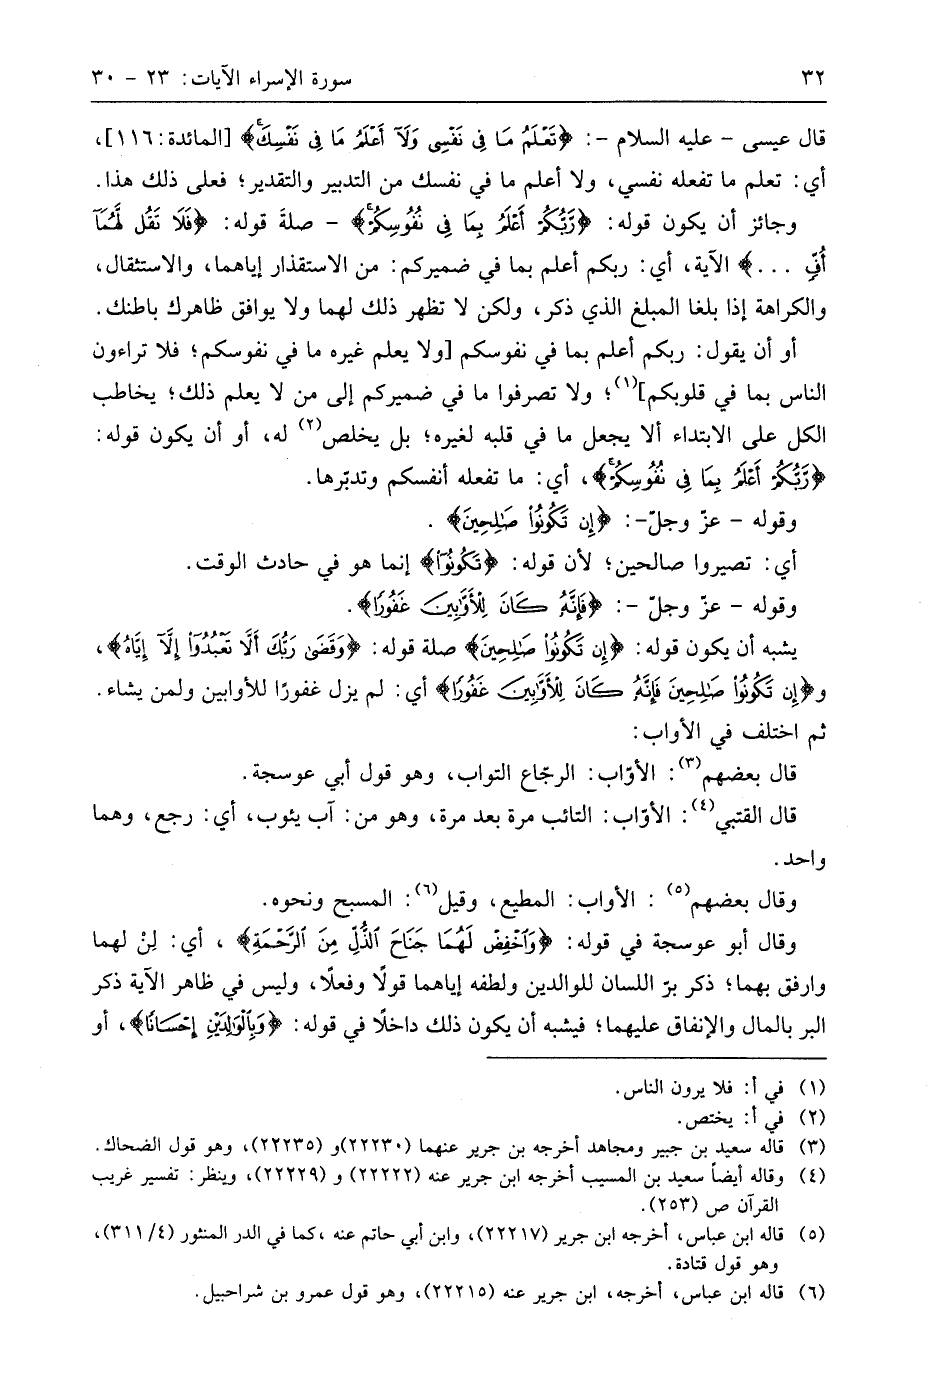 ٣٢ سورة الإسراء الآيات: ٢٣ - ٣٠
قال عيسى - عليه السلام -: ﴿تَعْلَمُ مَا فِى نَفْسِى وَلَآ أَعْلَمُ مَا فِى نَفْسِكَۚ﴾ [المائدة: ١١٦]،
أي: تعلم ما تفعله نفسي، ولا أعلم ما في نفسك من التدبير والتقدير؛ فعلى ذلك هذا.
وجائز أن يكون قوله: ﴿رَّبُّكُمْ أَعْلَمُ بِمَا فِى نُفُوسِكُمْۚ﴾ - صلةَ قوله: ﴿فَلَا تَقُل لَّهُمَآ
أُفٍّ ...﴾ الآية، أي: ربكم أعلم بما في ضميركم: من الاستقذار إياهما، والاستثقال،
والكراهة إذا بلغا المبلغ الذي ذكر، ولكن لا تظهر ذلك لهما ولا يوافق ظاهرك باطنك.
أو أن يقول: ربكم أعلم بما في نفوسكم [ولا يعلم غيره ما في نفوسكم؛ فلا تراءون
الناس بما في قلوبكم](١)؛ ولا تصرفوا ما في ضميركم إلى من لا يعلم ذلك؛ يخاطب
الكل على الابتداء ألا يجعل ما في قلبه لغيره؛ بل يخلص(٢) له، أو أن يكون قوله:
﴿رَّبُّكُمْ أَعْلَمُ بِمَا فِى نُفُوسِكُمْۚ﴾، أي: ما تفعله أنفسكم وتدبّرها.
وقوله - عزّ وجلّ-: ﴿إِن تَكُونُوا۟ صَٰلِحِينَ﴾ .
أي: تصيروا صالحين؛ لأن قوله: ﴿تَكُونُوٓا۟﴾ إنما هو في حادث الوقت.
وقوله - عزّ وجلّ -: ﴿فَإِنَّهُۥ كَانَ لِلْأَوَّٰبِينَ غَفُورًا﴾.
يشبه أن يكون قوله: ﴿إِن تَكُونُوا۟ صَٰلِحِينَ﴾ صلة قوله: ﴿وَقَضَىٰ رَبُّكَ أَلَّا تَعْبُدُوٓا۟ إِلَّآ إِيَّاهُ﴾،
و﴿إِن تَكُونُوا۟ صَٰلِحِينَ فَإِنَّهُۥ كَانَ لِلْأَوَّٰبِينَ غَفُورًا﴾ أي: لم يزل غفورًا للأوابين ولمن يشاء.
ثم اختلف في الأواب:
قال بعضهم(٣): الأوّاب: الرجّاع التواب، وهو قول أبي عوسجة.
قال القتبي(٤): الأوّاب: التائب مرة بعد مرة، وهو من: آب يئوب، أي: رجع، وهما
واحد.
وقال بعضهم(٥) : الأواب: المطيع، وقيل(٦): المسبح ونحوه.
وقال أبو عوسجة في قوله: ﴿وَٱخْفِضْ لَهُمَا جَنَاحَ ٱلذُّلِّ مِنَ ٱلرَّحْمَةِ﴾ ، أي: لِنْ لهما
وارفق بهما؛ ذكر برّ اللسان للوالدين ولطفه إياهما قولًا وفعلًا، وليس في ظاهر الآية ذكر
البر بالمال والإنفاق عليهما؛ فيشبه أن يكون ذلك داخلًا في قوله: ﴿وَبِٱلْوَٰلِدَيْنِ إِحْسَٰنًا﴾، أو
(١) في أ: فلا يرون الناس.
(٢) في أ: يختص.
(٣) قاله سعيد بن جبير ومجاهد أخرجه بن جرير عنهما (٢٢٢٣٠)و (٢٢٢٣٥)، وهو قول الضحاك.
(٤) وقاله أيضاً سعيد بن المسيب أخرجه ابن جرير عنه (٢٢٢٢٢) و (٢٢٢٢٩)، وينظر: تفسير غريب
القرآن ص (٢٥٣).
(٥) قاله ابن عباس، أخرجه ابن جرير (٢٢٢١٧)، وابن أبي حاتم عنه ،كما في الدر المنثور (٣١١/٤)،
وهو قول قتادة.
(٦) قاله ابن عباس، أخرجه، ابن جرير عنه (٢٢٢١٥)، وهو قول عمرو بن شراحبيل.